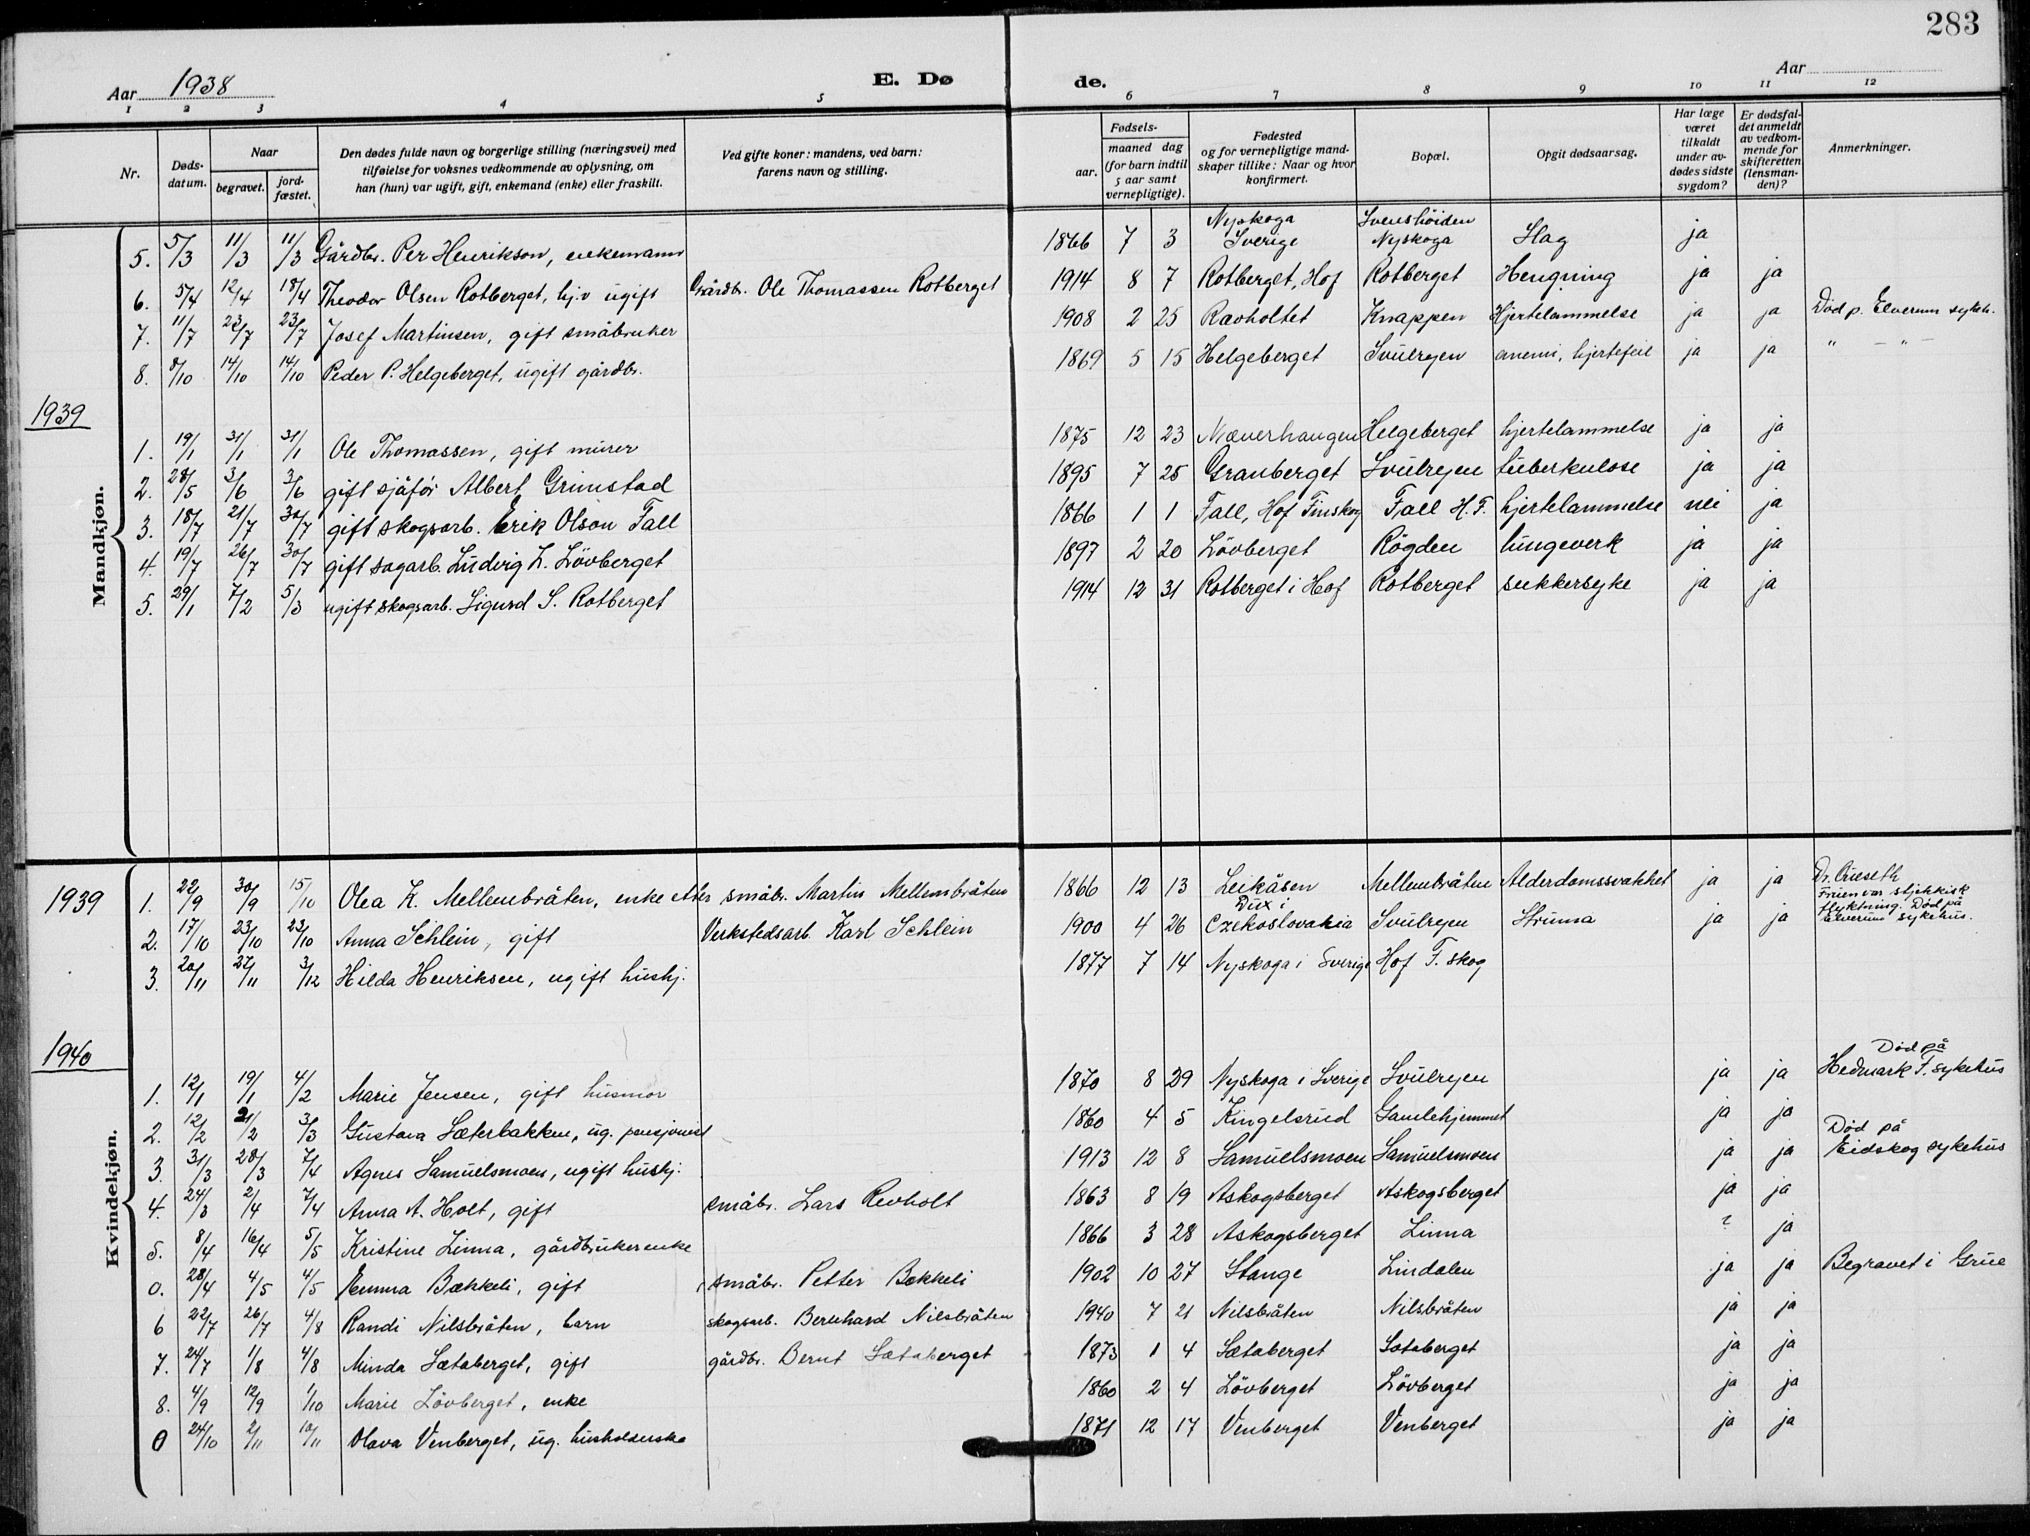 283
Aar 1938 E. Dø de. Aar
1 2 3 4 5 6 7 8 9 10 11 12
Nr. Døds-datum. Naar begravet. jord-fæstet. Den dødes fulde navn og borgerlige stilling (næringsvei) med tilføielse for voksnes vedkommende av oplysning, om han (hun) var ugift, gift, enkemand (enke) eller fraskilt. Ved gifte koner: mandens, ved barn: farens navn og stilling. Fødsels- aar. maaned dag (for barn indtil 5 aar samt vernepligtige). Fødested og for vernepligtige mandskaper tillike: Naar og hvor konfirmert. Bopæl. Opgit dødsaarsag. Har læge været tilkaldt under avdødes sidste sygdom? Er dødsfaldet anmeldt av vedkommende for skifteretten (lensmanden)? Anmerkninger.
Mandkjøn.
5. 5/3 11/3 11/3 Gårdbr. Per Henrikson, enkemann 1866 7 3 Nyskoga Sverige Svenshöiden Nyskoga Slag ja
6. 5/4 12/4 18/4 Theodor Olsen Rotberget, hj.v ugift Gårdbr. Ole Thomassen Rotberget 1914 8 7 Rotberget, Hof Rotberget Hengning ja ja
7. 11/7 23/7 23/7 Josef Martinsen, gift småbruker 1908 2 25 Ravholtet Knappen Hjertelammelse ja ja Död p. Elverum sykeh.
8. 8/10 14/10 14/10 Peder P. Helgeberget, ugift gårdbr. 1869 5 15 Helgeberget Svulryen anemi, hjertefeil ja ja " - " -
1939
1. 19/1 31/1 31/1 Ole Thomassen, gift murer 1875 12 23 Næverhaugen Helgeberget hjertelammelse ja ja
2. 28/5 3/6 3/6 gift sjåför Albert Grimstad 1895 7 25 Granberget Svulryen tuberkulose ja ja
3. 18/7 21/7 30/7 gift skogsarb. Erik Olson Fall 1866 1 1 Fall, Hof Finskog Fall H. F. hjertelammelse nei ja
4. 19/7 26/7 30/7 gift sagarb. Ludvig L. Lövberget 1897 2 20 Lövberget Rögden lungeverk ja ja
5. 29/1 7/2 5/3 ugift skogsarb. Sigurd S. Rotberget 1914 12 31 Rotberget i Hof Rotberget sukkersyke ja ja
Kvindekjøn.
1939
1. 22/9 30/9 15/10 Olea K. Mellembråten, enke etter småbr. Martin Mellembråten 1866 12 13 Leikåsen Mellembråten Alderdomssvakhet ja ja
2. 17/10 23/10 23/10 Anna Schlein, gift Verkstedsarb. Karl Schlein 1900 4 26 Dux i Czekoslovakia Svulryen Struma ja ja Fruen var stjekkisk flyktning. Död på Elverum sykehus.
3. 20/11 27/11 3/12 Hilda Henriksen, ugift hushj. 1877 7 14 Nyskoga i Sverige Hof F. skog
1940
1. 12/1 19/1 4/2 Marie Jensen, gift husmor 1870 8 29 Nyskoga i Sverige Svulryen ja ja Död på Hedmark F. sykehus
2. 12/2 21/2 3/3 Gustava Sæterbakken, ug. pensjonist 1860 4 5 Kingelsrud Gamlehjemmet ja ja
3. 31/3 28/3 7/4 Agnes Samuelsmoen, ugift hushj. 1913 12 8 Samuelsmoen Samuelsmoen ja ja Död på Eidskog sykehus
4. 24/3 2/4 7/4 Anna A. Holt, gift småbr. Lars Revholt 1863 8 19 Askogsberget Askogsberget ja ja
5. 8/4 16/4 5/5 Kristine Linna, gårdbrukerenke 1866 3 28 Askogsberget Linna ? ja
0. 28/4 4/5 4/5 Hemma Bækkeli, gift småbr. Petter Bækkeli 1902 10 27 Stange Lindalen ja ja Begravet i Grue
6 22/7 26/7 4/8 Randi Nilsbråten, barn skogsarb. Bernhard Nilsbråten 1940 7 21 Nilsbråten Nilsbråten ja ja
7. 24/7 1/8 4/8 Minda Sætaberget, gift gårdbr. Bernt Sætaberget 1873 1 4 Sætaberget Sætaberget ja ja
8. 4/9 12/9 1/10 Marie Lövberget, enke 1860 2 4 Lövberget Lövberget ja ja
0 24/10 2/11 10/11 Olava Venberget, ug. husholderske 1871 12 17 Venberget Venberget ja ja